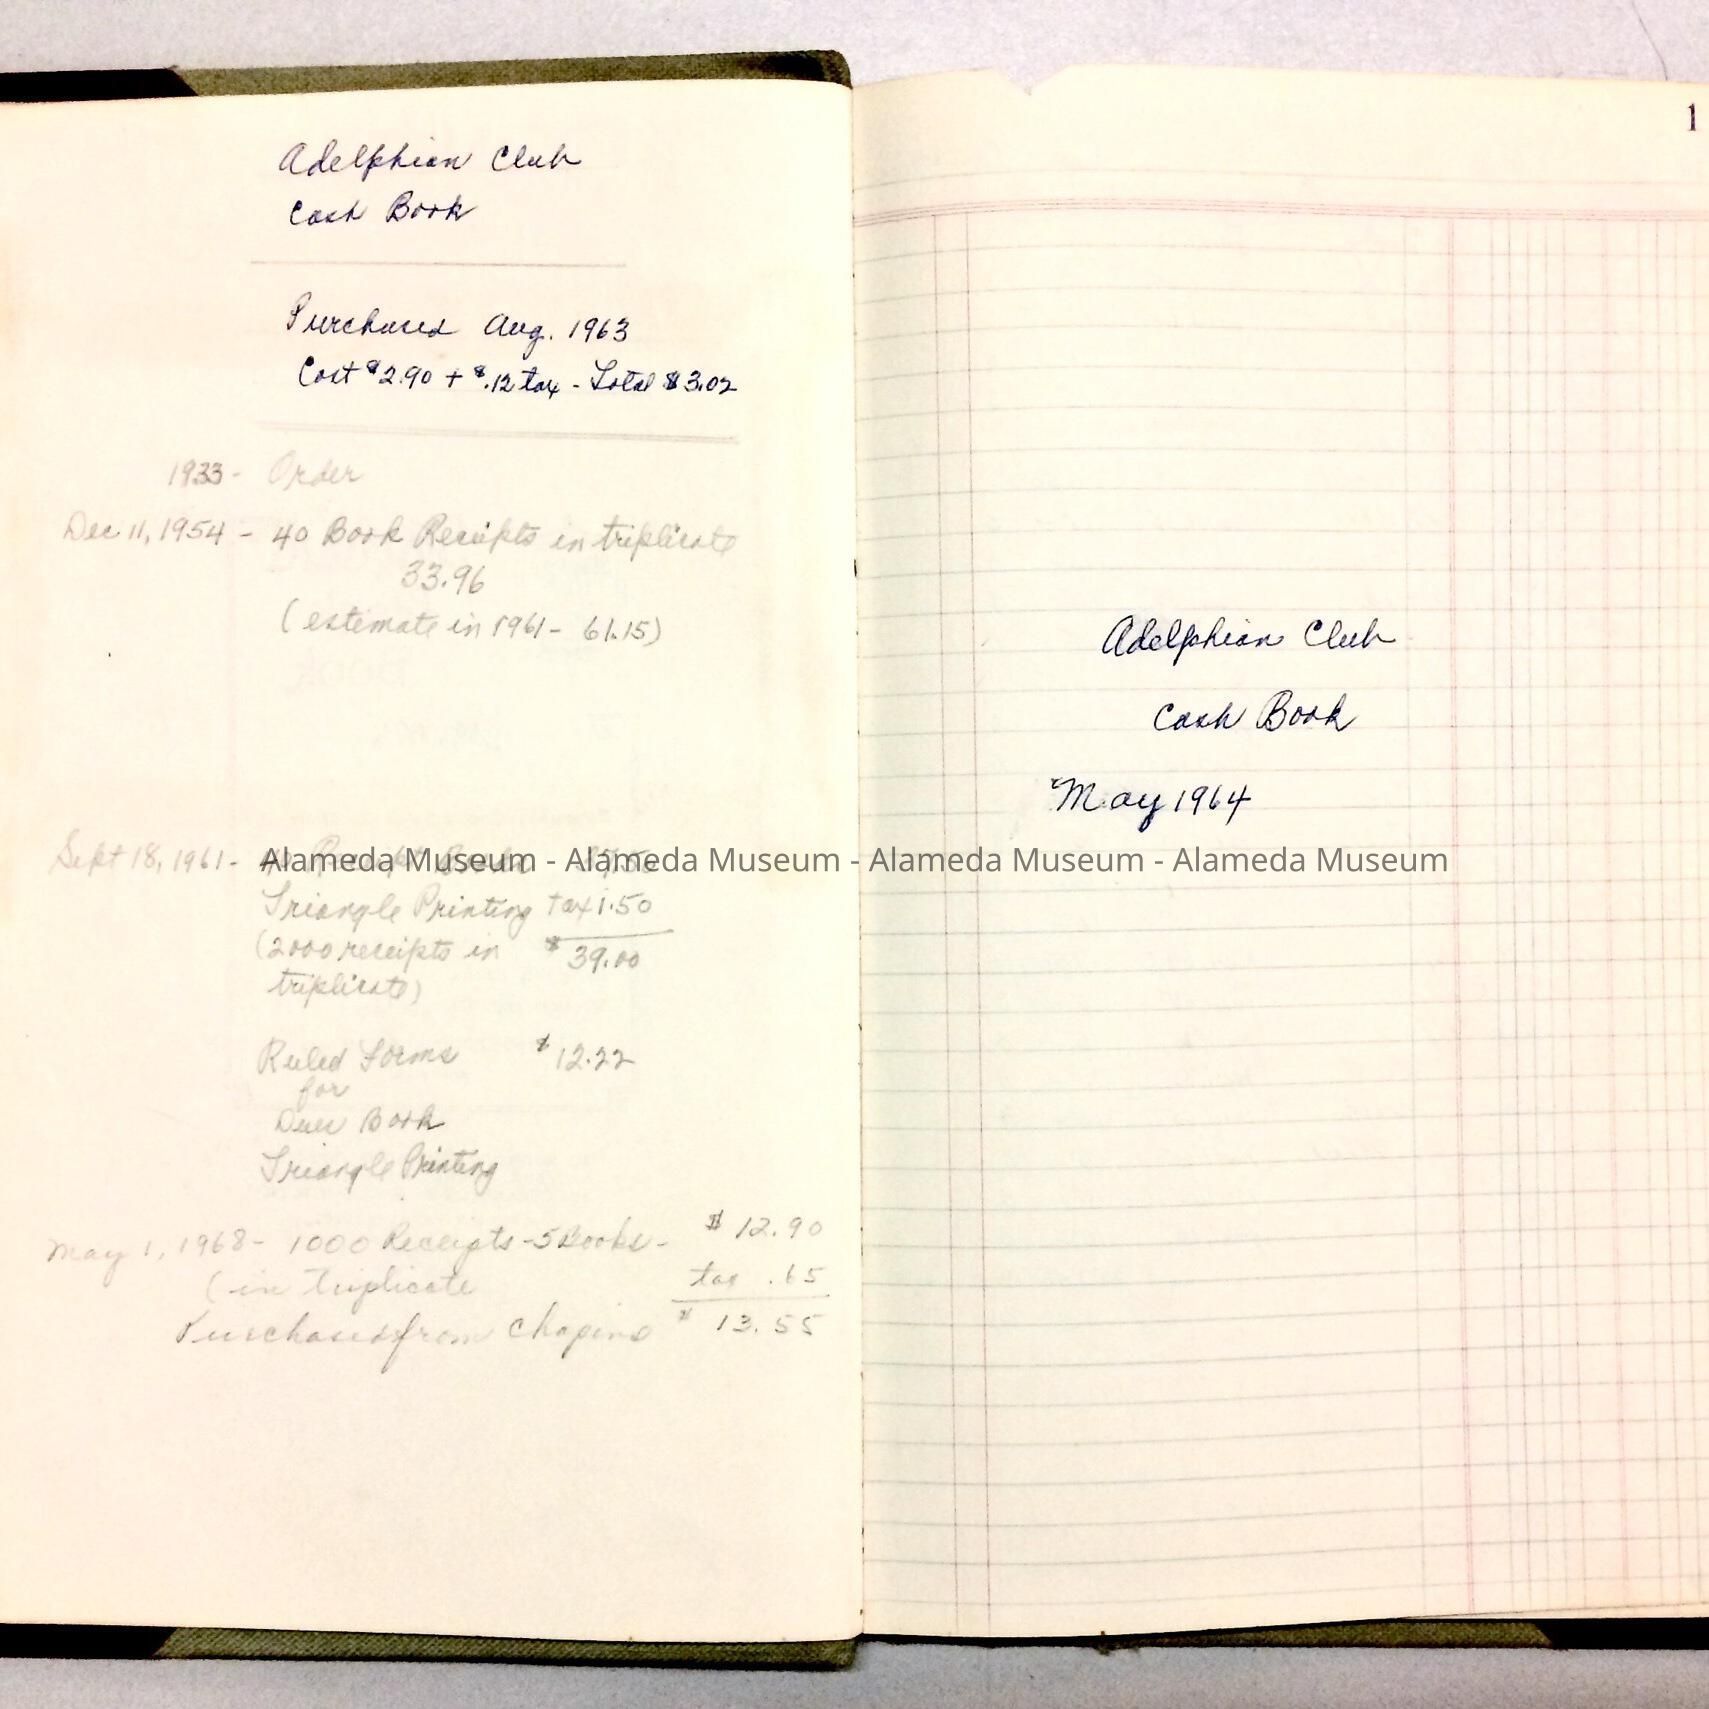 Adelphian Club
Cash Book
Purchased Aug. 1963
Cost $2.90 + $.12 tax - Total $3.02
1933- Order
Dec 11, 1954 - 40 Book Receipts in triplicate
33.96
(estimate in 1961- 61.15)
Sept 18, 1961-
Triangle Printing tax 1.50
(2000 receipts in $39.00
triplicate)
Ruled Forms $12.22
for
Dues Book
Triangle Printing
May 1, 1968- 1000 Receipts -5 Books- $12.90
(in triplicate tax .65
Purchased from Chapins $13.55
1
Adelphian Club
Cash Book
May 1964
Alameda Museum - Alameda Museum - Alameda Museum - Alameda Museum